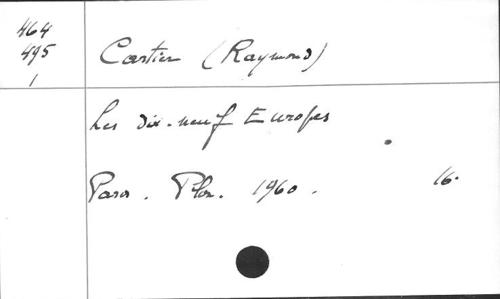 464
495
1
Cartier (Raymond)
Les dix-neuf Europes
Paris. Plon. 1960. 16.